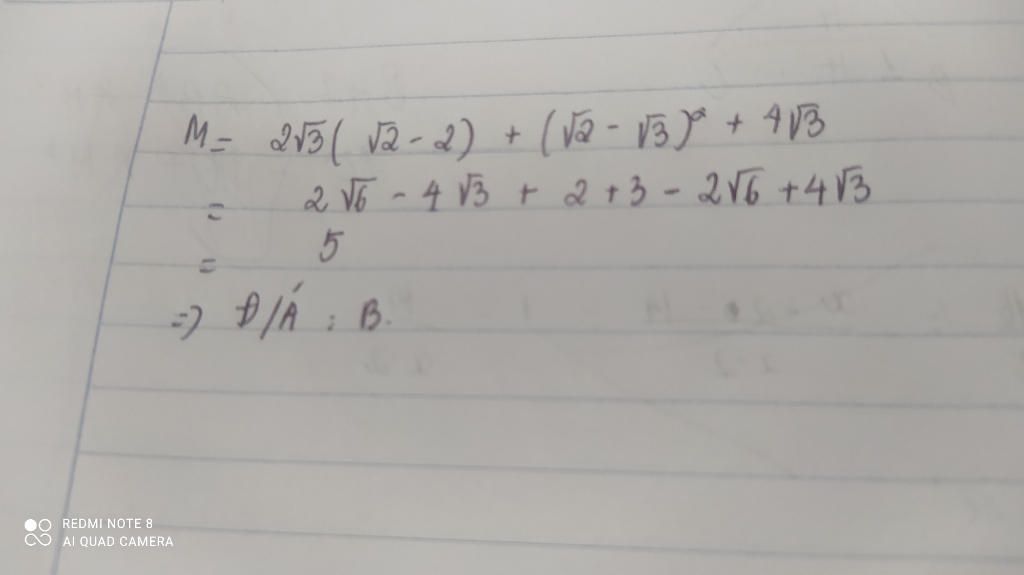 M = 2√3( √2 - 2) + (√2 - √3)² + 4√3
= 2√6 - 4√3 + 2 + 3 - 2√6 + 4√3
= 5
=) Đ/Á : B.
REDMI NOTE 8
AI QUAD CAMERA